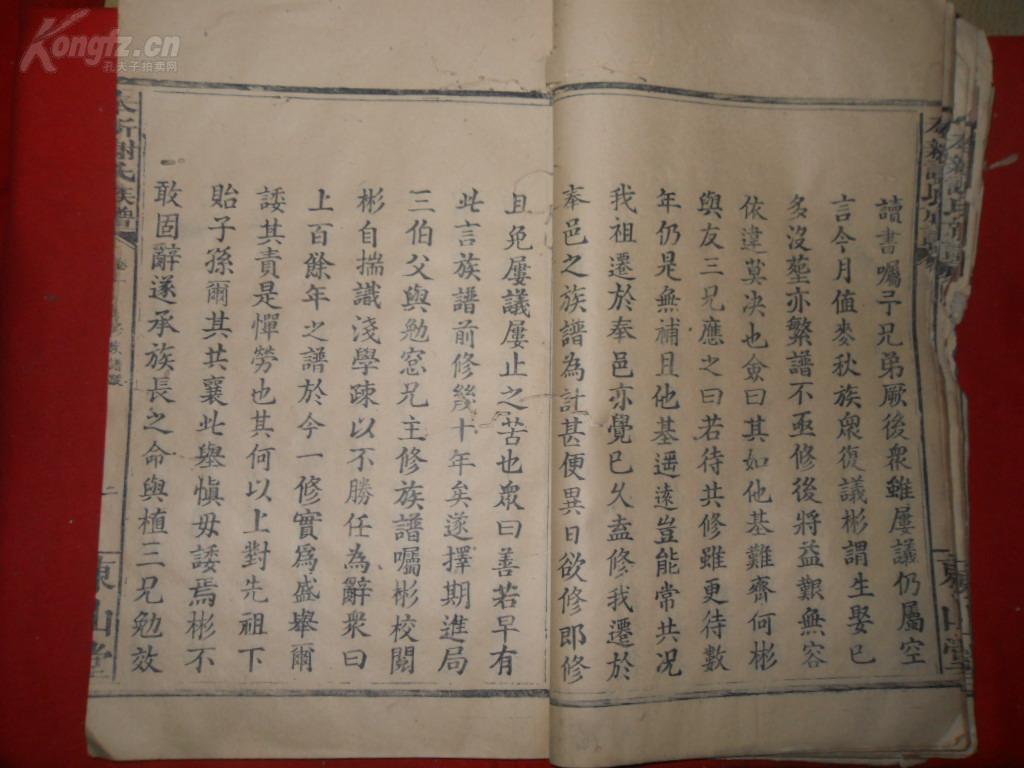 讀書囑予兄弟厥後衆雖屢議仍屬空
言今月值麥秋族衆復議彬謂生娶已
多沒塟亦繁譜不亟修後將益艱無容
依違莫决也僉曰其如他基難齊何彬
與友三兄應之曰若待共修雖更待數
年仍是無補且他基遥遠豈能常共况
我祖遷於奉邑亦覺已久盍修我遷於
奉邑之族譜為計甚便異日欲修即修
且免屢議屢止之苦也衆曰善若早有
此言族譜前修幾十年矣遂擇期進局
三伯父與勉窓兄主修族譜囑彬校閱
彬自揣識淺學疎以不勝任為辭衆曰
上百餘年之譜於今一修實爲盛舉爾
諉其責是憚勞也其何以上對先祖下
貽子孫爾其共襄此舉愼毋諉焉彬不
敢固辭遂承族長之命與植三兄勉效
謝氏族譜
二
東山堂
東山堂
Kongfz.cn
孔夫子拍卖网